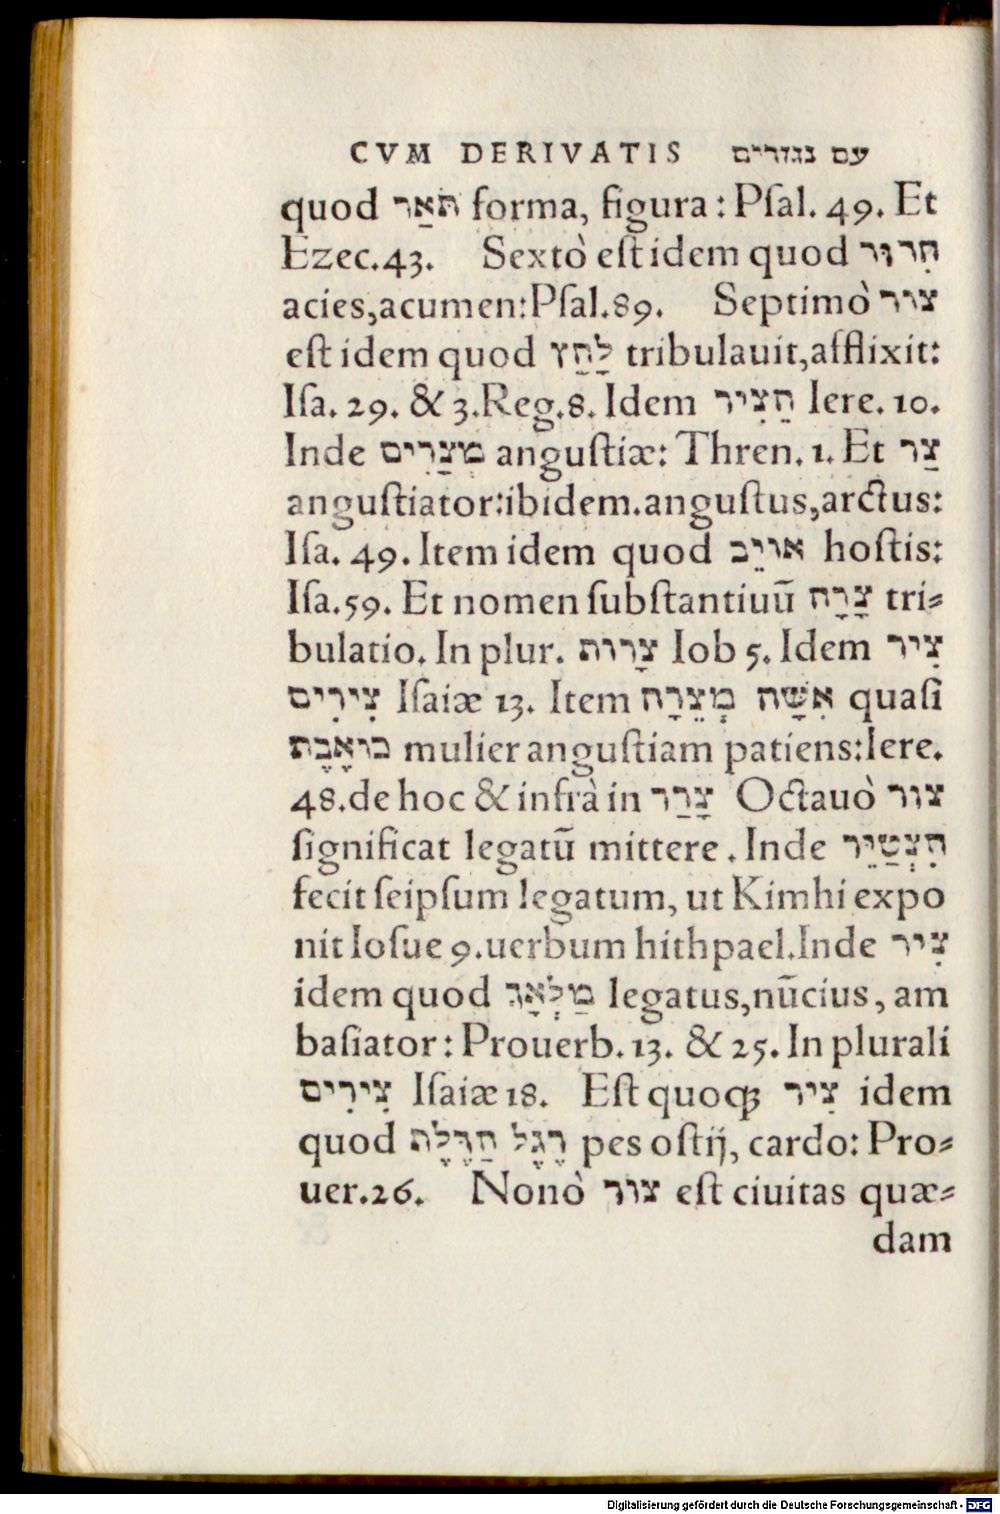 CVM DERIVATIS עם נגזרים
quod תֹּאַר forma, figura: Pſal. 49. Et
Ezec.43. Sextò eſt idem quod חִדּוּד
acies,acumen:Pſal.89. Septimò צור
eſt idem quod לָחַץ tribulauit,afflixit:
Iſa. 29. & 3.Reg.8. Idem הֵצִיר Iere. 10.
Inde מְצָרִים anguſtiæ: Thren. 1. Et צַר
anguſtiator:ibidem.anguſtus,arctus:
Iſa. 49. Item idem quod אויֵב hoſtis:
Iſa.59. Et nomen ſubſtantiuū צָרָה tri⸗
bulatio. In plur. צָרוֹת Iob 5. Idem צִיר
צִירִים Iſaiæ 13. Item אִשָּׁה מְצֵרָה quaſi
כואֶבֶת mulier anguſtiam patiens:Iere.
48.de hoc & infrà in צָרַר Octauò צור
ſignificat legatū mittere. Inde הִצְטַיֵּר
fecit ſeipſum legatum, ut Kimhi expo
nit Ioſue 9.uerbum hithpael.Inde צִיר
idem quod מַלְאָךְ legatus,nūcius, am
baſiator: Prouerb. 13. & 25. In plurali
צִירִים Iſaiæ 18. Eſt quoqꝫ צִיר idem
quod רֶגֶל הַדֶּלֶת pes oſtij, cardo: Pro⸗
uer.26. Nonò צור eſt ciuitas quæ⸗
dam
Digitalisierung gefördert durch die Deutsche Forschungsgemeinschaft - DFG